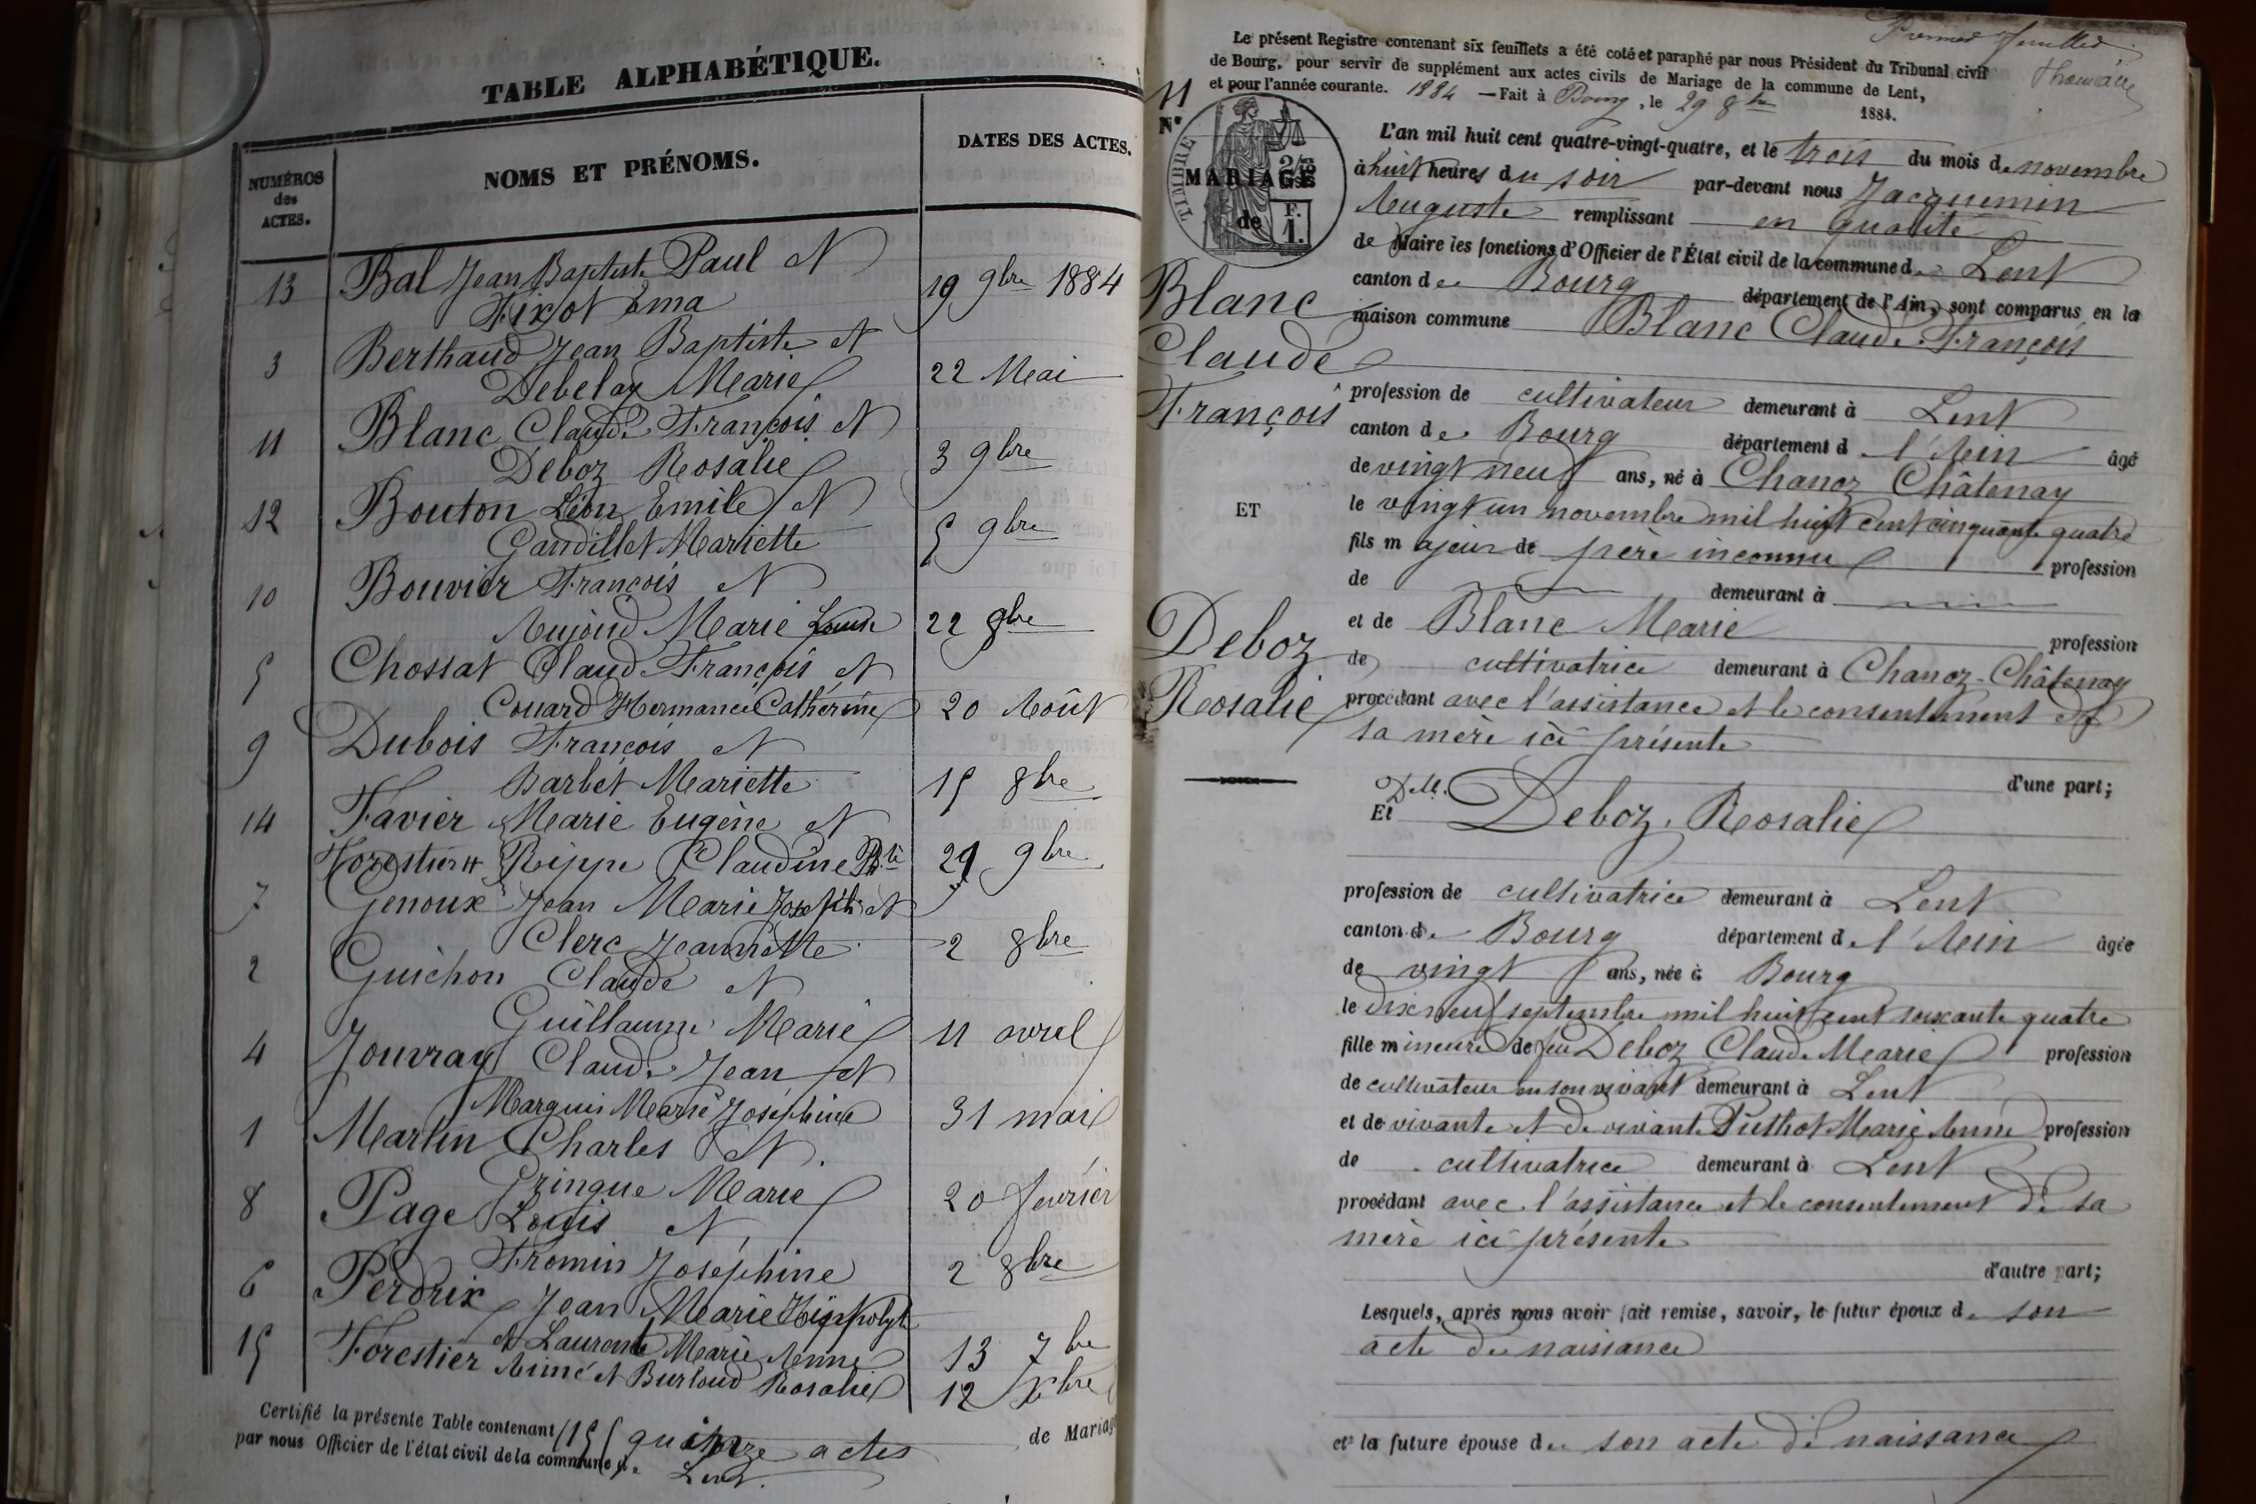 TABLE ALPHABÉTIQUE.
NUMÉROS des ACTES.
NOMS ET PRÉNOMS.
DATES DES ACTES.
13 Bal Jean Baptiste Paul et
Fixot Ema 19 9bre 1884
3 Berthaud Jean Baptiste et
Debelay Marie 22 Mai
11 Blanc Claude François et
Deboz Rosalie 3 9bre
12 Bouton Léon Emile et
Gandillet Mariette 5 9bre
10 Bouvier François et
Aujoud Marie Louise 22 8bre
5 Chossat Claude François et
Couard Hermance Catherine 20 Août
9 Dubois François et
Barbet Mariette 15 8bre
14 Favier Marie Eugène et
Rippe Claudine 29 9bre
7 Genoux Jean Marie Joseph et
Clerc Jeannette 2 8bre
2 Guichon Claude et
Guillaume Marie 11 avril
4 Jouvray Claude Jean et
Marquis Marie Joséphine 31 mai
1 Martin Charles et
Pringue Marie 20 février
8 Page Louis et
Fromin Joséphine 2 8bre
6 Perdrix Jean Marie Hippolyte
et Laurent Marie Anne 13 7bre
15 Forestier Aimé et Burloud Rosalie 12 Xbre
Certifié la présente Table contenant 15 quinze actes de Mariage
par nous Officier de l'état civil de la commune de Lent.
Premier feuillet
Le présent Registre contenant six feuillets a été coté et paraphé par nous Président du Tribunal civil
de Bourg, pour servir de supplément aux actes civils de Mariage de la commune de Lent,
et pour l'année courante. 1884 — Fait à Bourg, le 29 8bre 1884.
11
N°
TIMBRE
MARIAGE
de
F.
1.
Blanc
Claude
François
ET
Deboz
Rosalie
L'an mil huit cent quatre-vingt-quatre, et le trois du mois de novembre
à huit heures du soir par-devant nous Jacquemin
Auguste remplissant en qualité
de Maire les fonctions d'Officier de l'État civil de la commune de Lent
canton de Bourg département de l'Ain, sont comparus en la
maison commune Blanc Claude François
profession de cultivateur demeurant à Lent
canton de Bourg département d l'Ain âgé
de vingt neuf ans, né à Chanoz Châtenay
le vingt un novembre mil huit cent cinquante quatre
fils majeur de père inconnu profession
de demeurant à
et de Blanc Marie profession
de cultivatrice demeurant à Chanoz-Châtenay
procédant avec l'assistance et le consentement de
sa mère ici présente
d'une part;
Dlle.
Et Deboz Rosalie
profession de cultivatrice demeurant à Lent
canton de Bourg département d l'Ain âgée
de vingt ans, née à Bourg
le dix neuf septembre mil huit cent soixante quatre
fille mineure de feu Deboz Claude Marie profession
de cultivateur en son vivant demeurant à Lent
et de vivante et de vivante Puthot Marie Anne profession
de cultivatrice demeurant à Lent
procédant avec l'assistance et le consentement de sa
mère ici présente
d'autre part;
Lesquels, après nous avoir fait remise, savoir, le futur époux de son
acte de naissance
et la future épouse de son acte de naissance